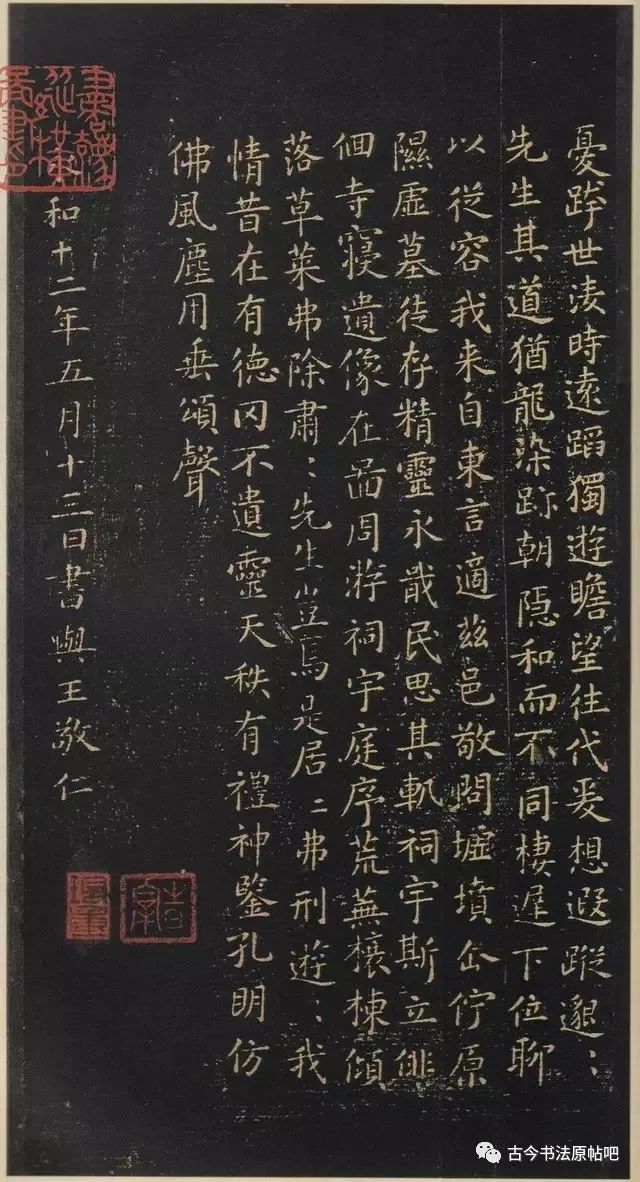 憂跨世凌時遠蹈獨遊瞻望往代爰想遐蹤邈〻
先生其道猶龍染跡朝隠和而不同棲遅下位聊
以從容我来自東言適兹邑敬問墟墳企佇原
隰虛墓徒存精靈永戢民思其軌祠宇斯立俳
佪寺寑遺像在啚周游祠宇庭序荒蕪榱棟傾
落草莱弗除肅〻先生豈焉是居〻弗刑遊〻我
情昔在有德罔不遺靈天秩有禮神鑒孔明仿
佛風塵用垂頌聲
和十二年五月十三日書與王敬仁
古今书法原帖吧